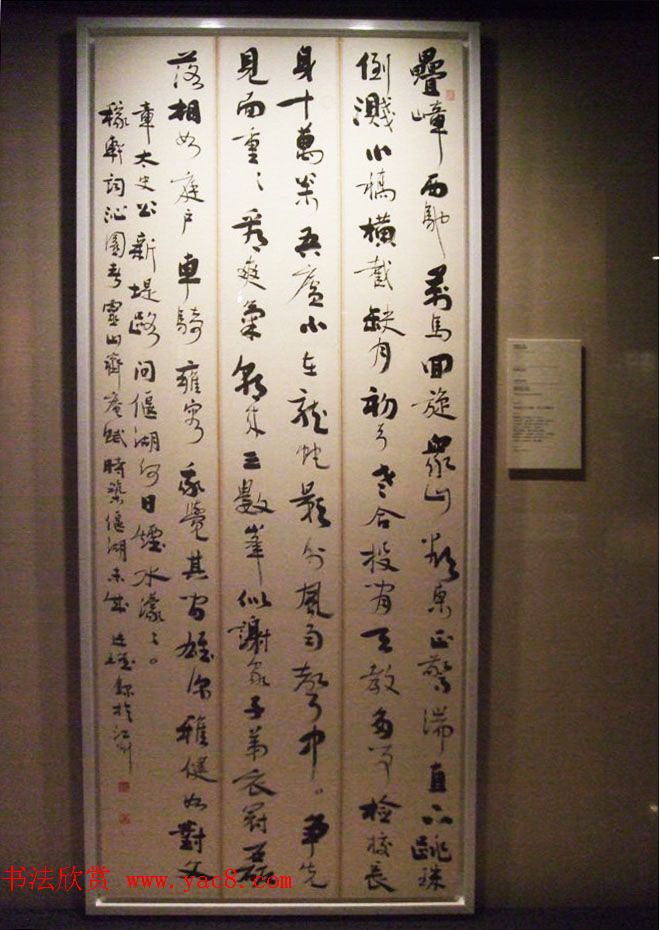 疊嶂西馳萬馬回旋眾山欲東正驚湍直下跳珠
倒濺小橋橫截缺月初弓老合投閒天教多事檢校長
身十萬松吾廬小在龍蛇影外風雨聲中。爭先
見面重〻看爽氣朝來三數峯似謝家子弟衣冠磊
落相如庭戶車騎雍容我覺其間雄深雅健如對文
章太史公新堤路問偃湖何日煙水濛〻。
稼軒詞沁園春靈山齊庵賦時築偃湖未成 錄於江
书法欣赏 www.yac8.com